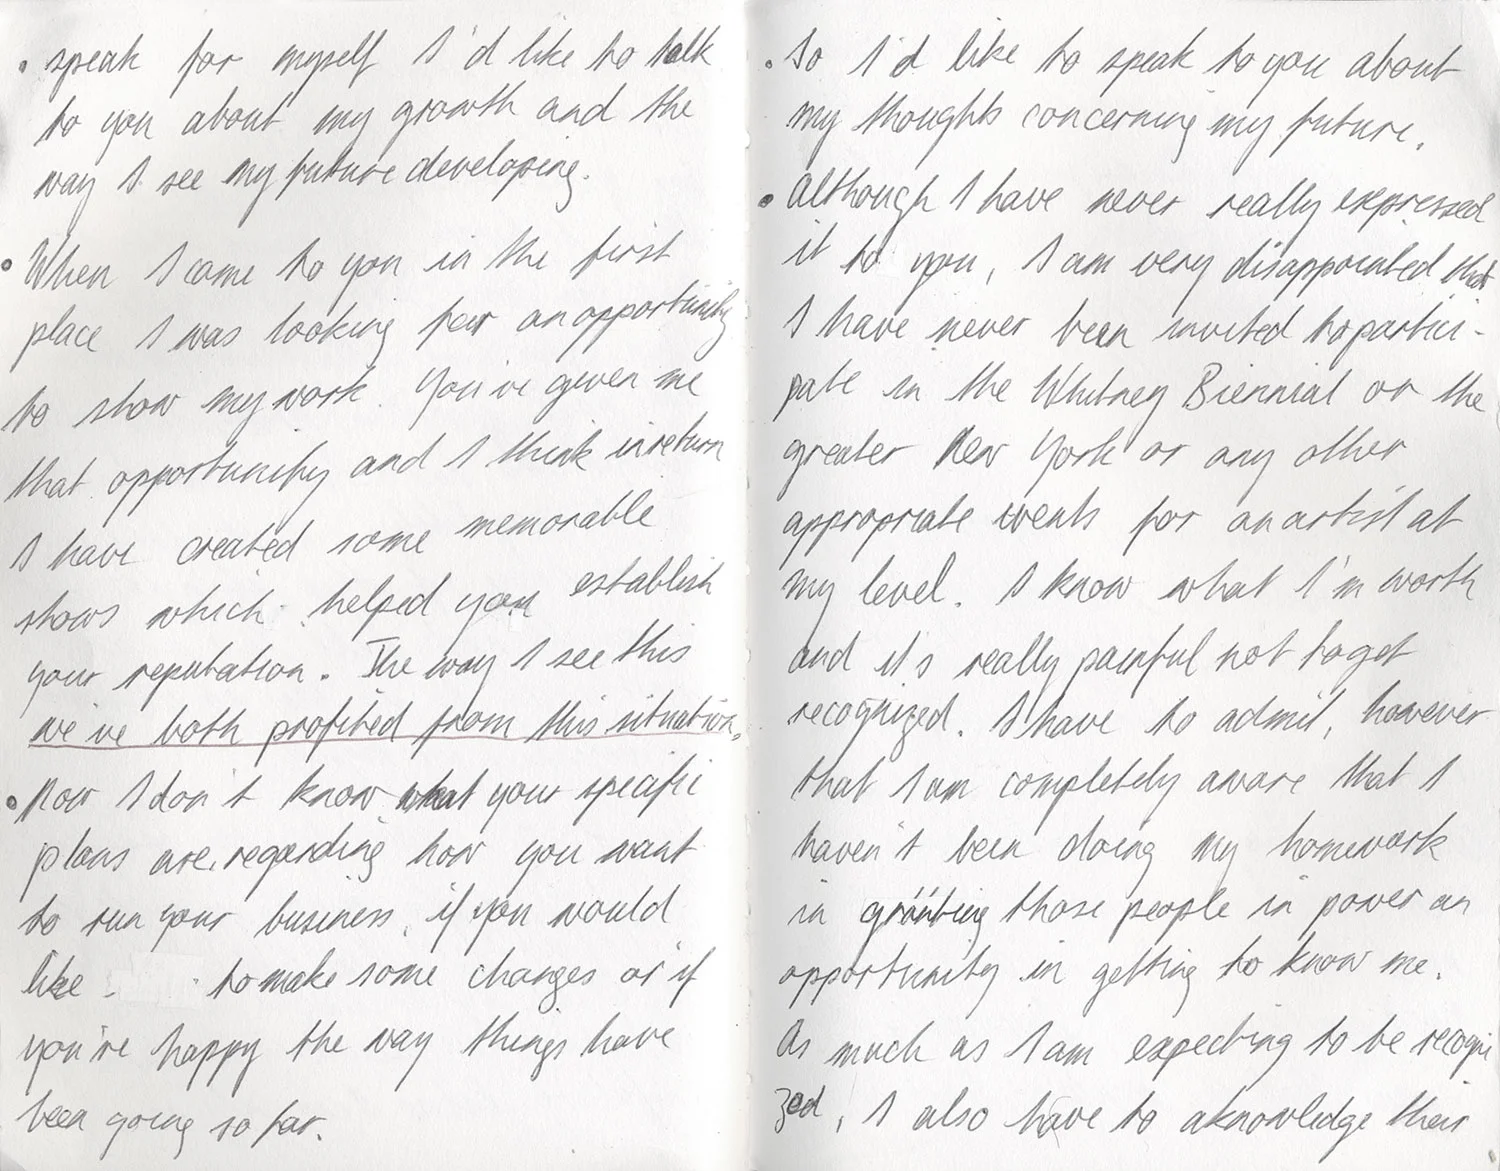 • speak for myself I'd like to talk
to you about my growth and the
way I see my future developing.
• When I came to you in the first
place I was looking for an opportunity
to show my work. You've given me
that opportunity and I think in return
I have created some memorable
shows which helped you establish
your reputation. The way I see this
we've both profited from this situation.
• Now I don't know what your specific
plans are, regarding how you want
to run your business, if you would
like to make some changes or if
you're happy the way things have
been going so far.
• So I'd like to speak to you about
my thoughts concerning my future.
• Although I have never really expressed
it to you, I am very disappointed that
I have never been invited to partici-
pate in the Whitney Biennial or the
greater New York or any other
appropriate events for an artist at
my level. I know what I'm worth
and it's really painful not to get
recognized. I have to admit, however
that I am completely aware that I
haven't been doing my homework
in granting those people in power an
opportunity in getting to know me.
As much as I am expecting to be recogni
zed, I also have to aknowledge their